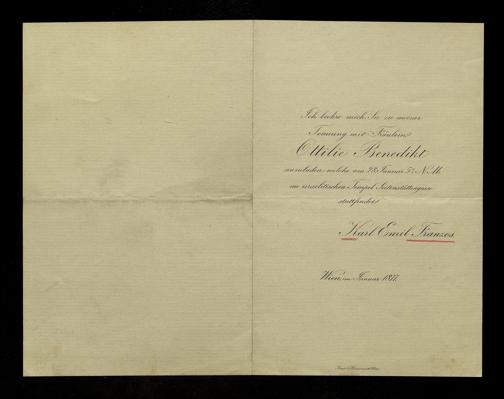 Ich beehre mich Sie zu meiner
Trauung mit Fräulein
Ottilie Benedikt
einzuladen welche am 28. Januar 5 N.M.
im israelitischen Tempel Seitenstettengasse
stattfindet
Karl Emil Franzos.
Wien, im Januar 1877.